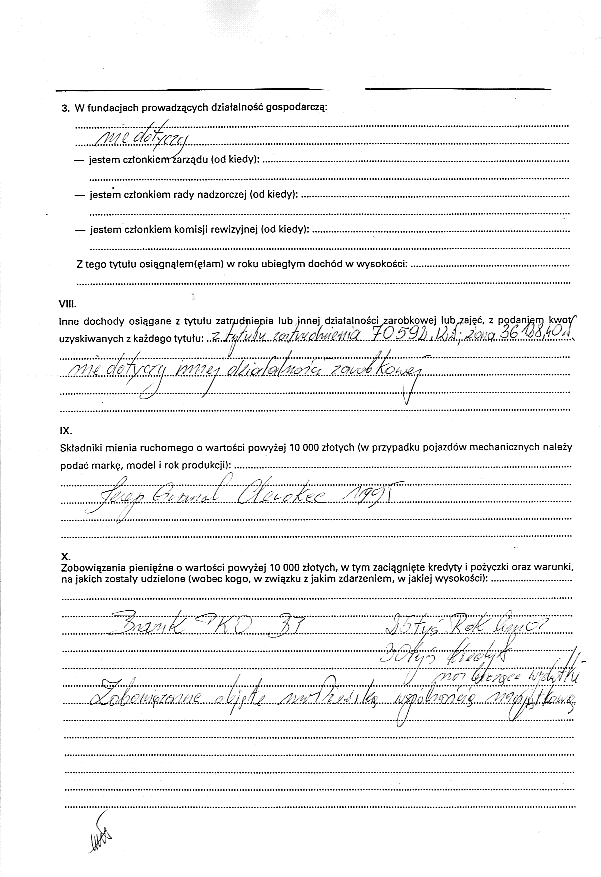 3. W fundacjach prowadzących działalność gospodarczą:
nie dotyczy
— jestem członkiem zarządu (od kiedy):
— jestem członkiem rady nadzorczej (od kiedy):
— jestem członkiem komisji rewizyjnej (od kiedy):
Z tego tytułu osiągnąłem(ęłam) w roku ubiegłym dochód w wysokości:
VIII.
Inne dochody osiągane z tytułu zatrudnienia lub innej działalności zarobkowej lub zajęć, z podaniem kwot
uzyskiwanych z każdego tytułu: z tytułu zatrudnienia żona
nie dotyczy innej działalności zarobkowej
IX.
Składniki mienia ruchomego o wartości powyżej 10 000 złotych (w przypadku pojazdów mechanicznych należy
podać markę, model i rok produkcji):
Jeep Grand Cherokee 1995
X.
Zobowiązania pieniężne o wartości powyżej 10 000 złotych, w tym zaciągnięte kredyty i pożyczki oraz warunki,
na jakich zostały udzielone (wobec kogo, w związku z jakim zdarzeniem, w jakiej wysokości):
Bank PKO BP
30 tyś kredyt
na bieżące wydatki
Zobowiązanie objęte małżeńską wspólnością majątkową